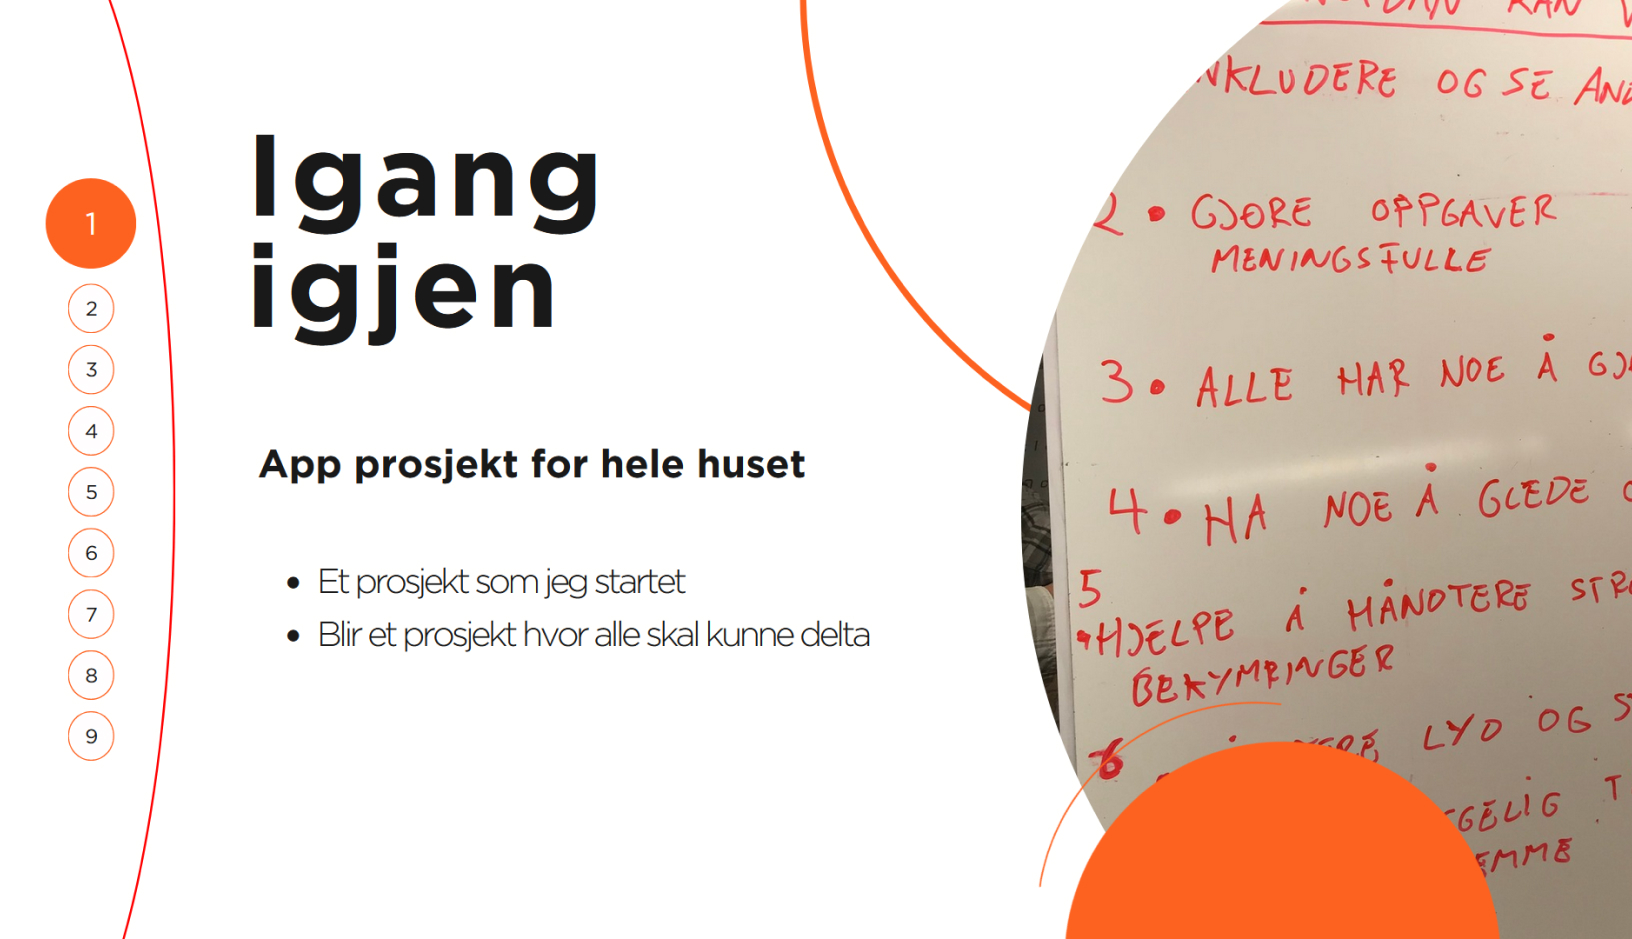 1
2
3
4
5
6
7
8
9
Igang
igjen
App prosjekt for hele huset
Et prosjekt som jeg startet
Blir et prosjekt hvor alle skal kunne delta
KAN
NKLUDERE OG SE AND
2 • GJØRE OPPGAVER
MENINGSFULLE
3 • ALLE HAR NOE Å GJ
4 • HA NOE Å GLEDE
5
• HJELPE Å HÅNDTERE STR
BEKYMRINGER
6 LYD OG S
GGELIG T
EMME